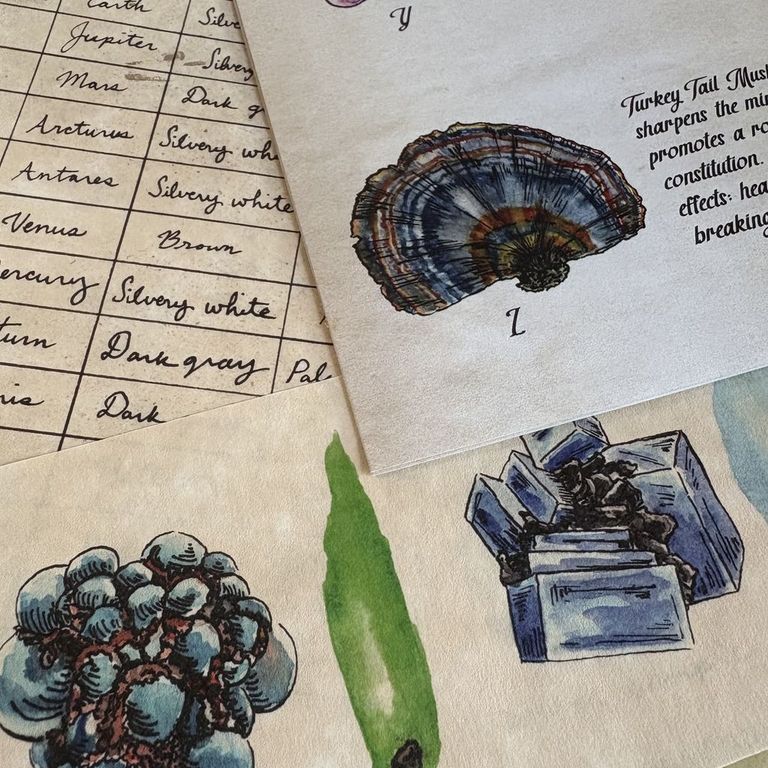 Earth
Jupiter Silvery
Mars Dark
Arcturus Silvery
Antares Silvery white
Venus Brown
Silvery white
Dark gray
Dark
Y
Turkey Tail
sharpens the
promotes a
constitution.
effects:
breaking
Z